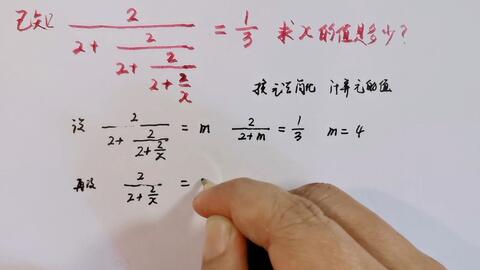 已知 2/(2+2/(2+2/(2+2/x))) = 1/3 求x的值是多少?
换元法简化 计算元的值
设 2/(2+2/(2+2/x)) = m 2/(2+m) = 1/3 m=4
再设 2/(2+2/x) =